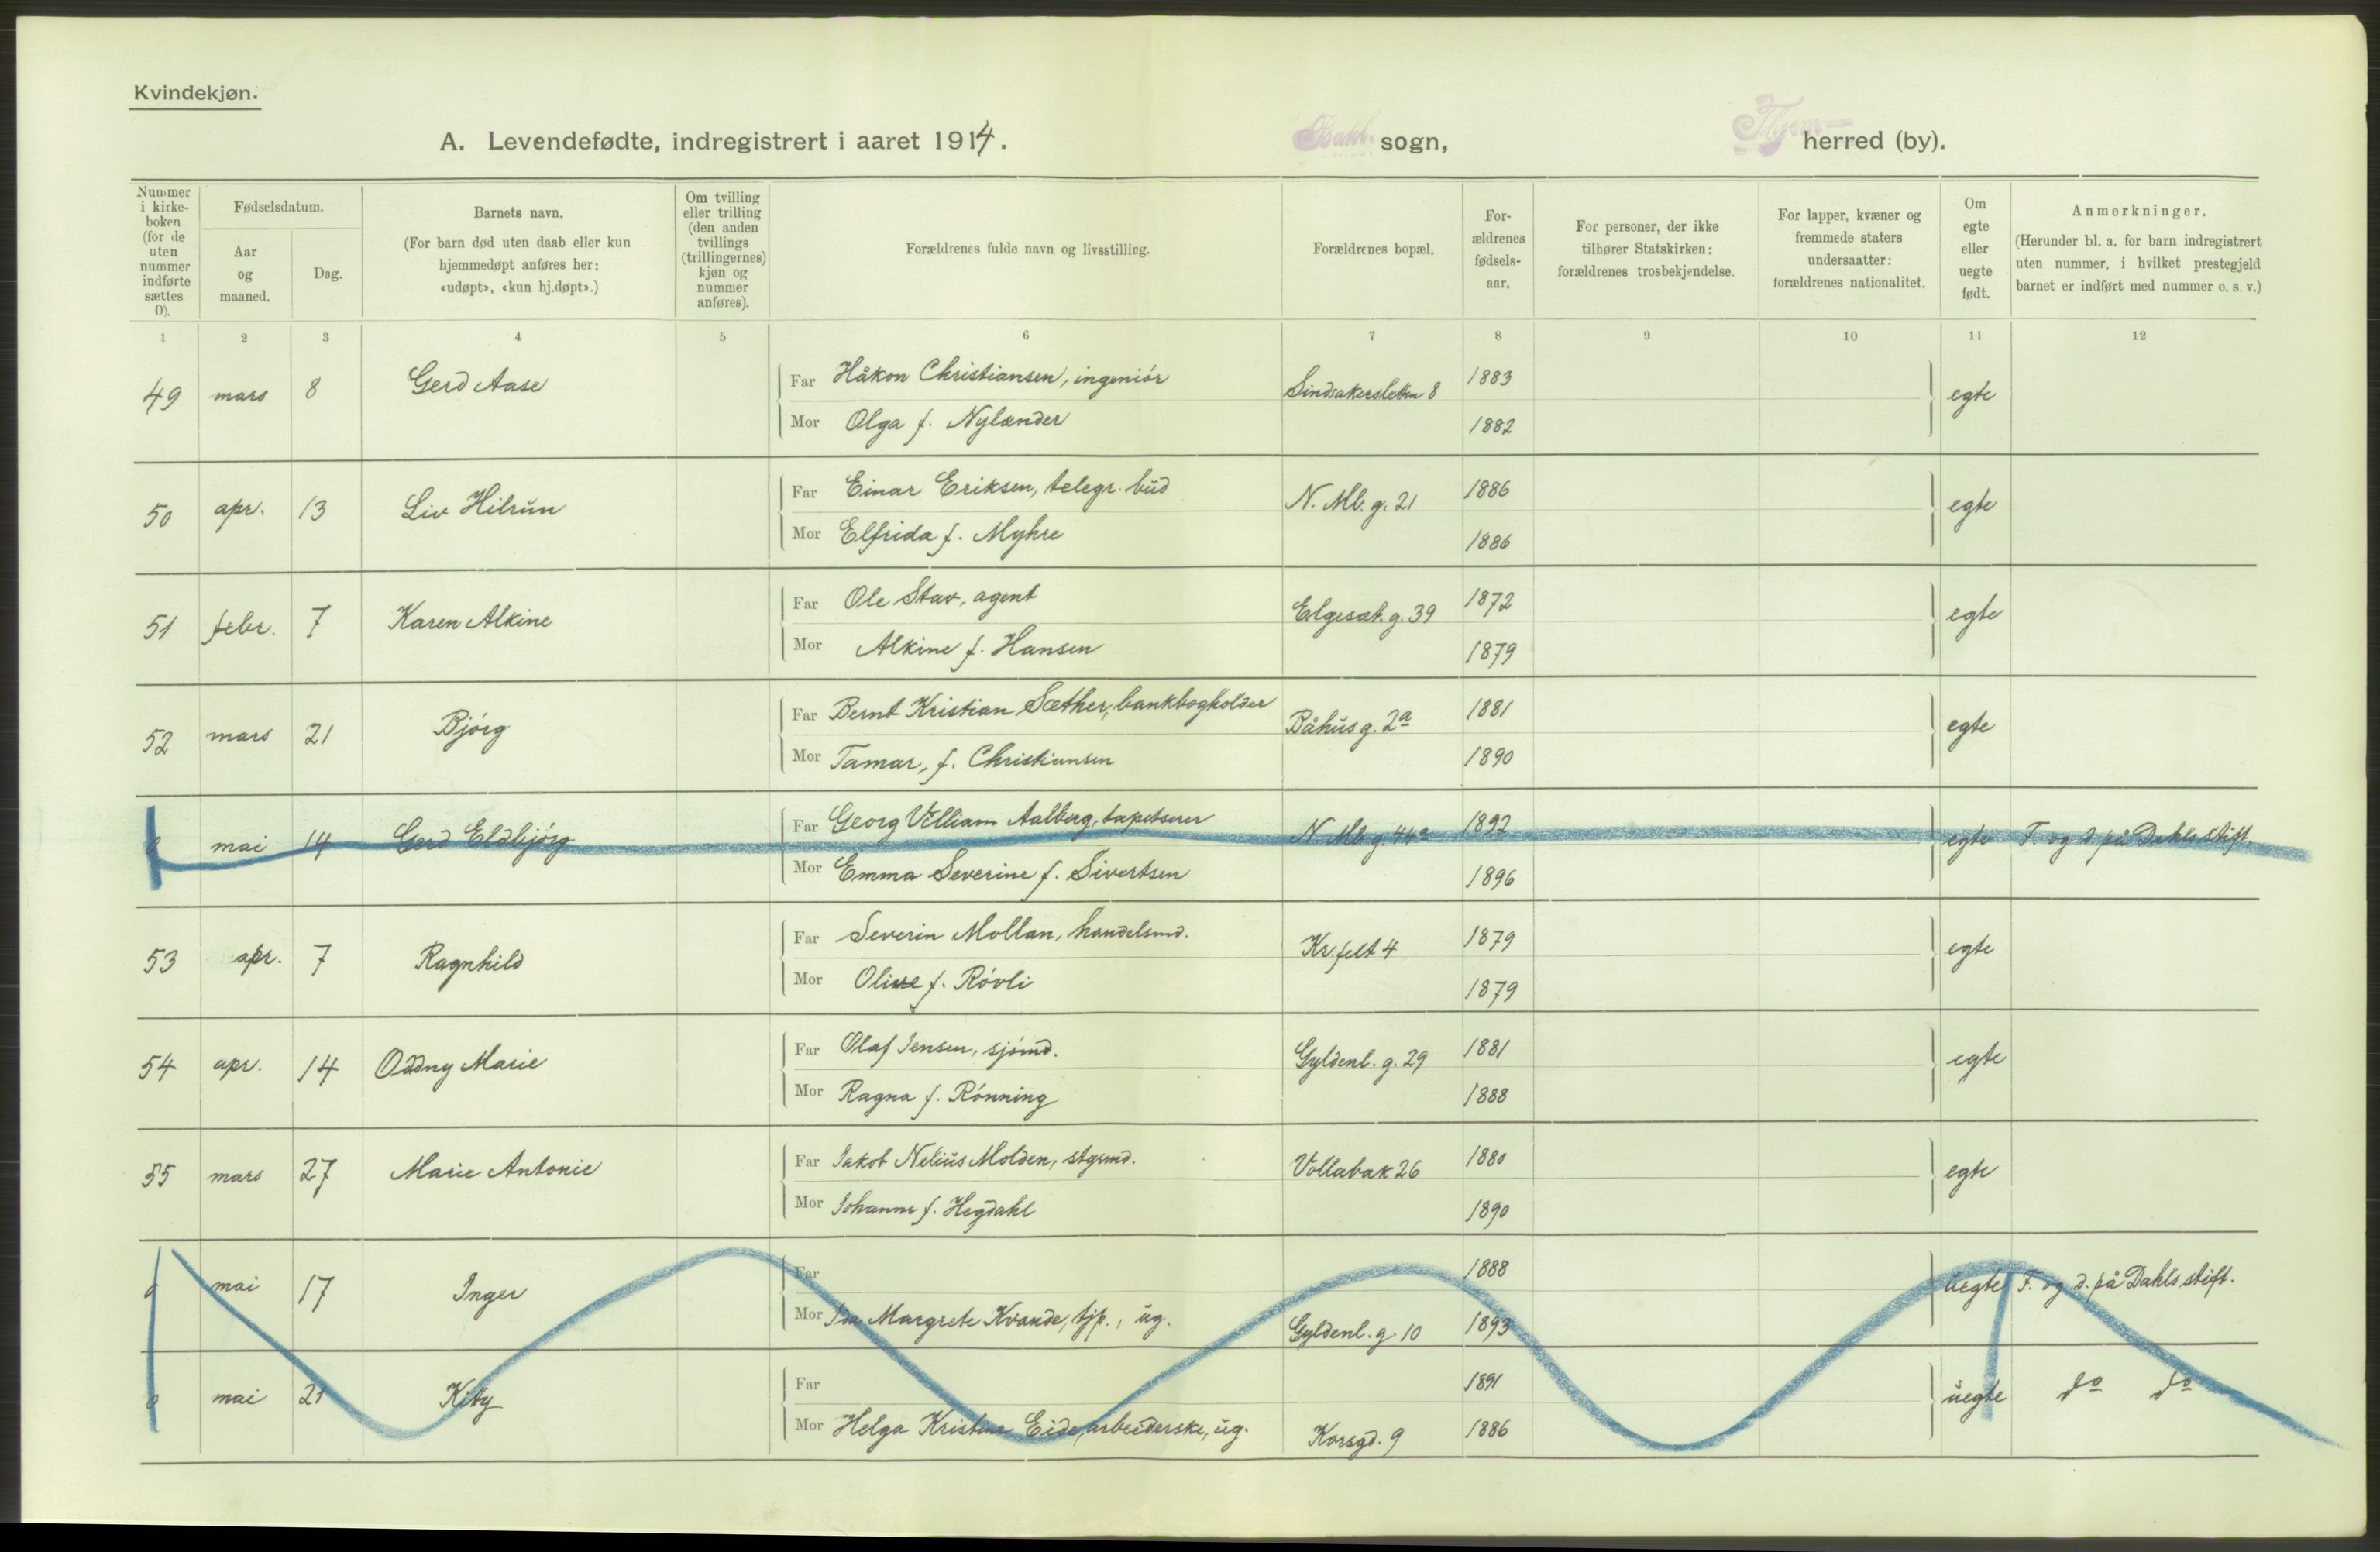 Kvindekjøn.
A. Levendefødte, indregistrert i aaret 1914. Bakl. sogn, Thjem herred (by).
Nummer i kirkeboken (for de uten nummer indførte sættes 0).
Fødselsdatum.
Aar og maaned.
Dag.
Barnets navn.
(For barn død uten daab eller kun hjemmedøpt anføres her: «udøpt», «kun hj.døpt».)
Om tvilling eller trilling (den anden tvillings (trillingernes) kjøn og nummer anføres).
Forældrenes fulde navn og livsstilling.
Forældrenes bopæl.
Forældrenes fødselsaar.
For personer, der ikke tilhører Statskirken: forældrenes trosbekjendelse.
For lapper, kvæner og fremmede staters undersaatter: forældrenes nationalitet.
Om egte eller uegte født.
Anmerkninger.
(Herunder bl. a. for barn indregistrert uten nummer, i hvilket prestegjeld barnet er indført med nummer o. s. v.)
1 2 3 4 5 6 7 8 9 10 11 12
49 mars 8 Gerd Aase Far Håkon Christiansen, ingeniór Sindsakersletten 8 1883 egte
Mor Olga f. Nylænder 1882
50 apr. 13 Liv Hilrun Far Einar Eriksen, telegr. bud N. Mb. g. 21 1886 egte
Mor Elfrida f. Myhre 1886
51 febr. 7 Karen Alkine Far Ole Stav, agent Elgesæt. g. 39 1872 egte
Mor Alkine f. Hansen 1879
52 mars 21 Bjórg Far Bernt Kristian Sæther, bankbogholder Båhus g. 2a 1881 egte
Mor Tamar, f. Christiansen 1890
0 mai 14 Gerd Eldbjórg Far Georg Villiam Aalberg, tapetserer N. Mb. g. 44a 1892 egte F. og d. på Dahls stift.
Mor Emma Severine f. Sivertsen 1896
53 apr. 7 Ragnhild Far Severin Mollan, handelsmd. Kr. felt 4 1879 egte
Mor Oline f. Róvli 1879
54 apr. 14 Oddny Marie Far Olaf Jensen, sjómd. Gyldenl. g. 29 1881 egte
Mor Ragna f. Rónning 1888
55 mars 27 Marie Antonie Far Jakob Nelius Molden, styrmd. Vollabak 26 1880 egte
Mor Johanne f. Hegdahl 1890
0 mai 17 Inger Far 1888 uegte F. og d. på Dahls stift.
Mor Ida Margrete Kvande, tjp., ug. Gyldenl. g. 10 1893
0 mai 21 Kitty Far 1891 uegte do do
Mor Helga Kristine Eide, arbeiderske, ug. Korsgd. 9 1886